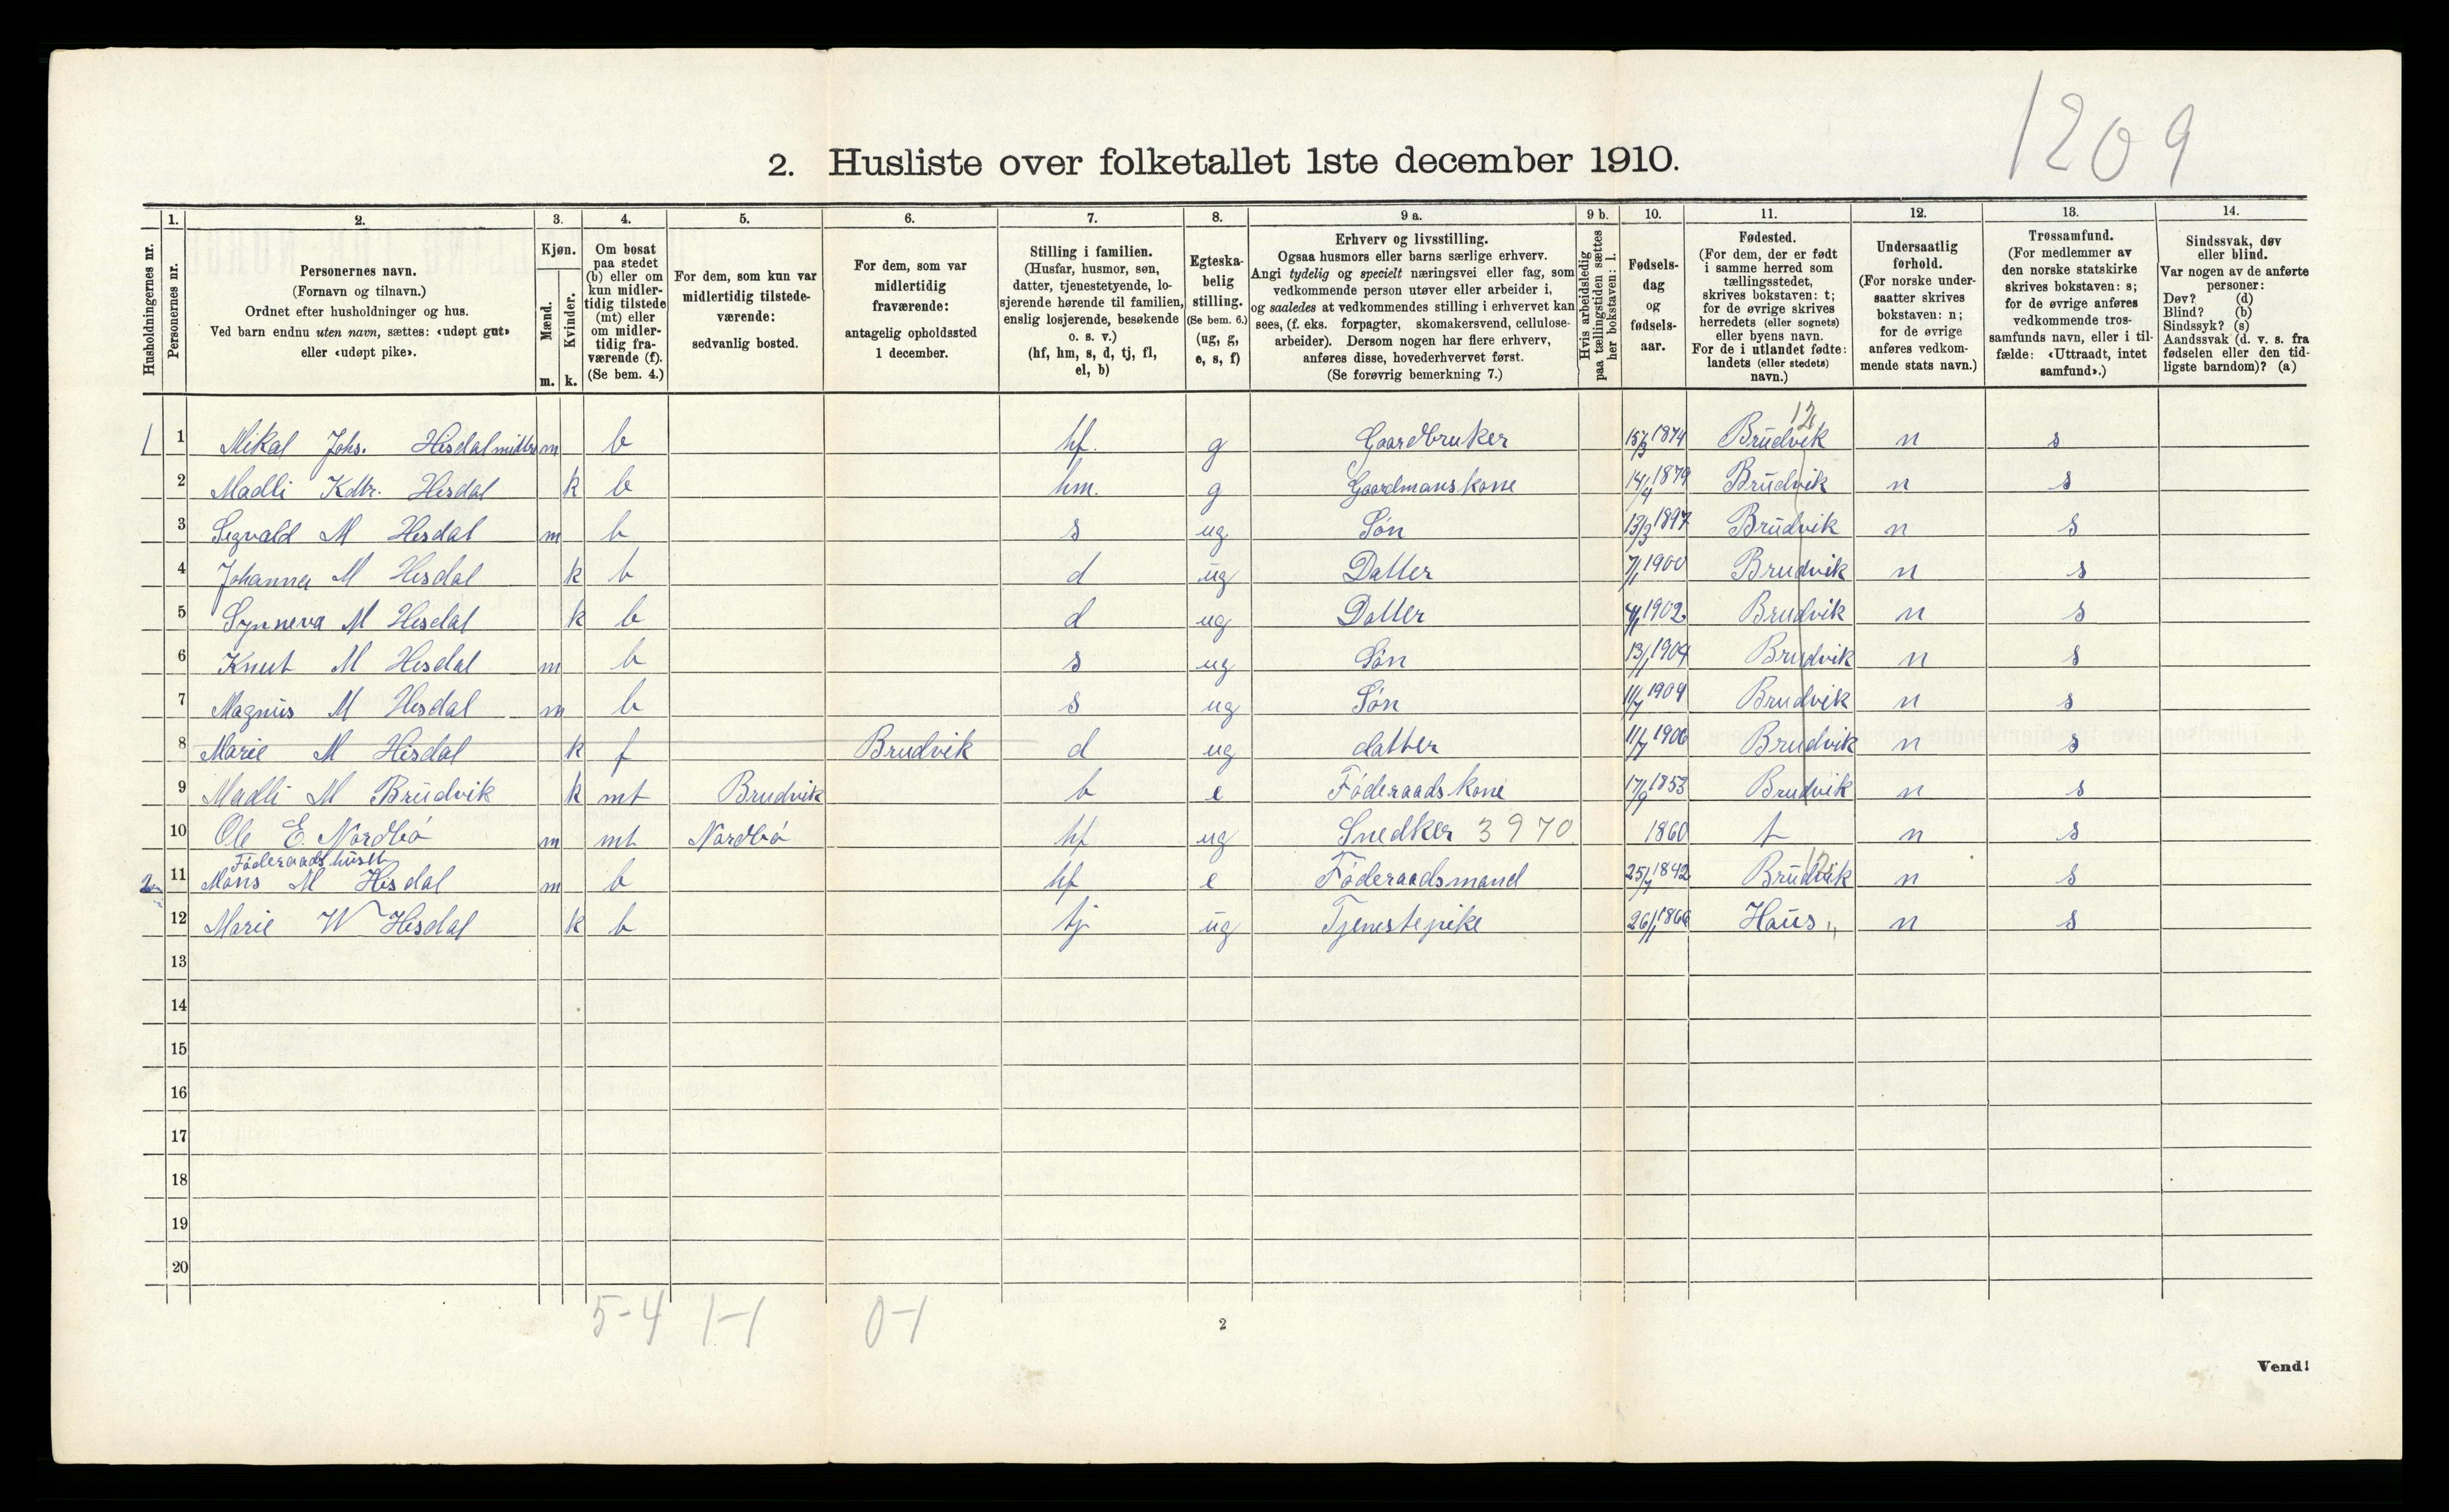 1209
2. Husliste over folketallet 1ste december 1910.
Husholdningernes nr.
1. Personernes nr.
2. Personernes navn. (Fornavn og tilnavn.) Ordnet efter husholdninger og hus. Ved barn endnu uten navn, sættes: «udøpt gut» eller «udøpt pike».
3. Kjøn. Mænd. m. Kvinder. k.
4. Om bosat paa stedet (b) eller om kun midlertidig tilstede (mt) eller om midlertidig fraværende (f). (Se bem. 4.)
5. For dem, som kun var midlertidig tilstedeværende: sedvanlig bosted.
6. For dem, som var midlertidig fraværende: antagelig opholdssted 1 december.
7. Stilling i familien. (Husfar, husmor, søn, datter, tjenestetyende, losjerende hørende til familien, enslig losjerende, besøkende o. s. v.) (hf, hm, s, d, tj, fl, el, b)
8. Egteskabelig stilling. (Se bem. 6.) (ug, g, e, s, f)
9 a. Erhverv og livsstilling. Ogsaa husmors eller barns særlige erhverv. Angi tydelig og specielt næringsvei eller fag, som vedkommende person utøver eller arbeider i, og saaledes at vedkommendes stilling i erhvervet kan sees, (f. eks. forpagter, skomakersvend, cellulosearbeider). Dersom nogen har flere erhverv, anføres disse, hovederhvervet først. (Se forøvrig bemerkning 7.)
9 b. Hvis arbeidsledig paa tællingstiden sættes her bokstaven: l.
10. Fødselsdag og fødselsaar.
11. Fødested. (For dem, der er født i samme herred som tællingsstedet, skrives bokstaven: t; for de øvrige skrives herredets (eller sognets) eller byens navn. For de i utlandet fødte: landets (eller stedets) navn.)
12. Undersaatlig forhold. (For norske undersaatter skrives bokstaven: n; for de øvrige anføres vedkommende stats navn.)
13. Trossamfund. (For medlemmer av den norske statskirke skrives bokstaven: s; for de øvrige anføres vedkommende trossamfunds navn, eller i tilfælde: «Uttraadt, intet samfund».)
14. Sindssvak, døv eller blind. Var nogen av de anførte personer: Døv? (d) Blind? (b) Sindssyk? (s) Aandssvak (d. v. s. fra fødselen eller den tidligste barndom)? (a)
12
1 1 Mikal Johs. Hisdal m b hf. g Gaardbruker 15/3 1874 Brudvik n s
2 Madli Kdtr. Hisdal k b hm. g Gaardmanskone 14/4 1879 Brudvik n s
3 Sigvald M Hisdal m b s ug Søn 13/3 1897 Brudvik n s
4 Johanna M Hisdal k b d ug Datter 7/1 1900 Brudvik n s
5 Synneva M Hisdal k b d ug Datter 1902 Brudvik n s
6 Knut M Hisdal m b s ug Søn 13/1 1904 Brudvik n s
7 Magnus M Hisdal m b s ug Søn 11/7 1904 Brudvik n s
8 Marie M Hisdal k f Brudvik d ug datter 11/7 1906 Brudvik n s
9 Madli M Brudvik k mt Brudvik b e Føderaadskone 17/9 1853 Brudvik n s
10 Ole E. Nordbø m mt Nordbø hf ug Snedker 3970 1860 t n s
Føderaadshuset
2 11 Mons M Hisdal m b hf e Føderaadsmand 25/7 1842 Brudvik n s
12 Marie W Hisdal k b tj ug Tjenestepike 26/1 1866 Haus n s
13
14
15
16
17
18
19
20
5-4 1-1 0-1
2
Vend!